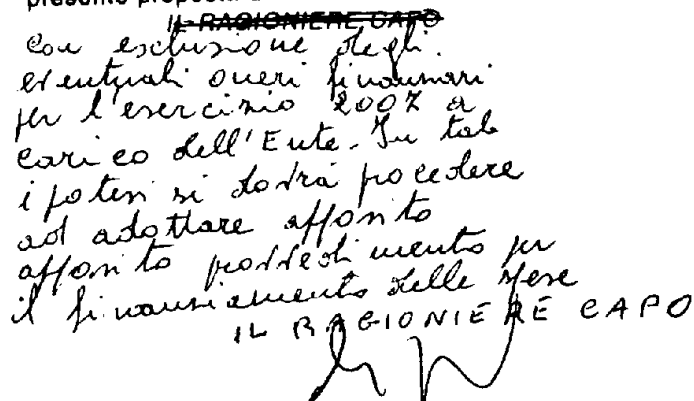 presente proposta
IL RAGIONIERE CAPO
con esclusione degli
eventuali oneri finanziari
per l'esercizio 2007 a
carico dell'Ente. In tale
ipotesi si dovrà procedere
ad adottare apposito
apposito provvedimento per
il finanziamento delle spese
IL RAGIONIERE CAPO